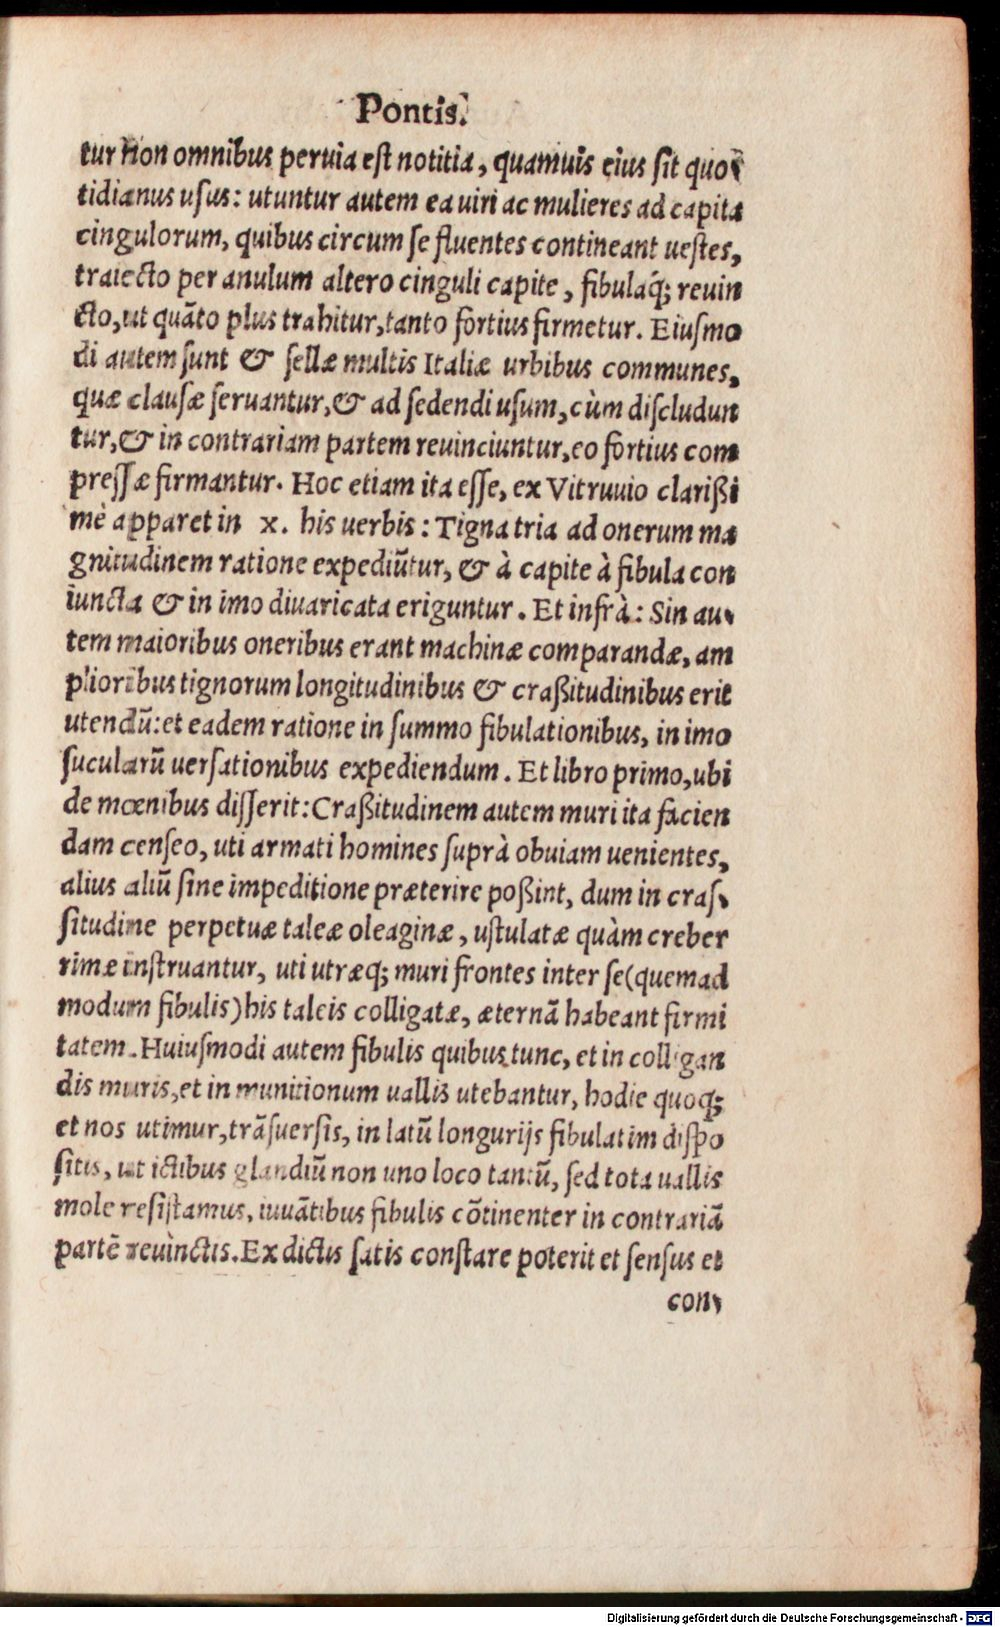 Pontis.
tur non omnibus peruia est notitia, quamuis eius sit quo
tidianus usus: utuntur autem ea uiri ac mulieres ad capita
cingulorum, quibus circum se fluentes contineant uestes,
traiecto per anulum altero cinguli capite, fibulaq́; reuin
cto, ut quãto plus trahitur, tanto fortius firmetur. Eiusmo
di autem sunt & sellæ multis Italiæ urbibus communes,
quæ clausæ seruantur, & ad sedendi usum, cùm discludun
tur, & in contrariam partem reuinciuntur, eo fortius com
pressæ firmantur. Hoc etiam ita esse, ex Vitruuio clarißi
mè apparet in x. his uerbis: Tigna tria ad onerum ma
gnitudinem ratione expediũtur, & à capite à fibula con
iuncta & in imo diuaricata eriguntur. Et infrà: Sin au-
tem maioribus oneribus erant machinæ comparandæ, am
plioribus tignorum longitudinibus & craßitudinibus erit
utendũ: et eadem ratione in summo fibulationibus, in imo
sucularũ uersationibus expediendum. Et libro primo, ubi
de mœnibus disserit: Craßitudinem autem muri ita facien
dam censeo, uti armati homines suprà obuiam uenientes,
alius aliũ sine impeditione præterire poßint, dum in cras-
situdine perpetuæ taleæ oleaginæ, ustulatæ quàm creber
rimæ instruantur, uti utræq; muri frontes inter se (quemad
modum fibulis) his taleis colligatæ, æternã habeant firmi
tatem. Huiusmodi autem fibulis quibus tunc, et in colligan
dis muris, et in munitionum uallis utebantur, hodie quoq;
et nos utimur, trãsuersis, in latũ longurijs fibulatim dispo
sitis, ut ictibus glandiũ non uno loco tantũ, sed tota uallis
mole resistamus, iuuãtibus fibulis cõtinenter in contrariã
partẽ reuinctis. Ex dictis satis constare poterit et sensus et
con-
Digitalisierung gefördert durch die Deutsche Forschungsgemeinschaft - DFG